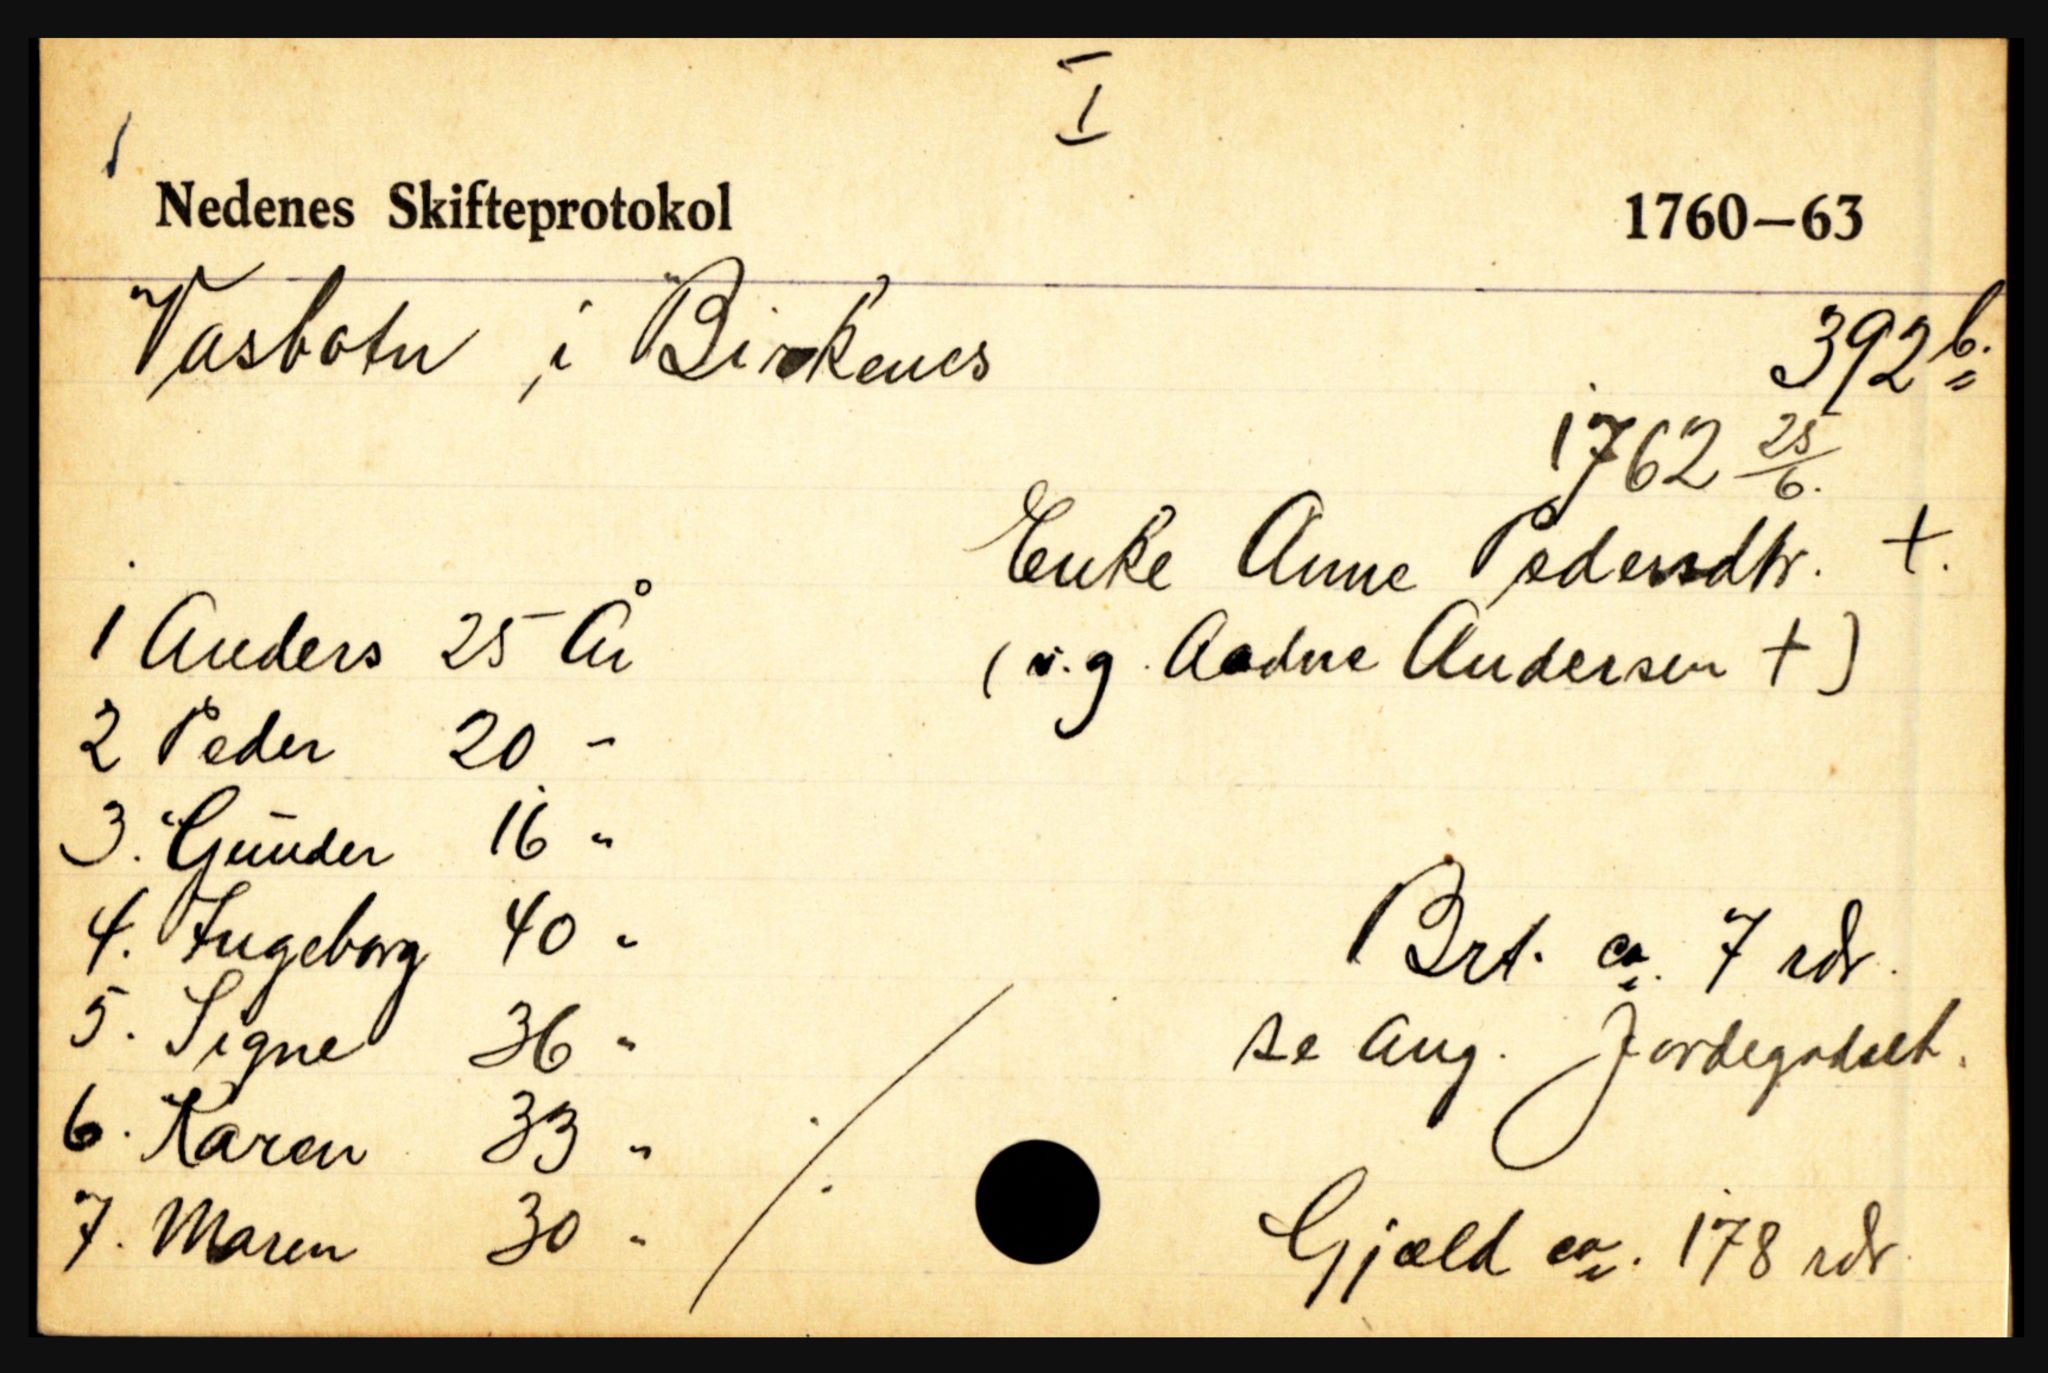 I
Nedenes Skifteprotokol 1760–63
Vasbotn i Birkenes 392 b.
1762 25/6.
Enke Anne Pedersdtr. +.
1 Anders 25 År (v. g. Aadne Andersen +)
2 Peder 20 "
3. Gunder 16 "
4. Ingeborg 40 " Brt. ca. 7 rdr.
5. Signe 36 " se ang. Jordegodset.
6. Karen 33 "
7. Maren 30 " Gjæld ca. 178 rdr